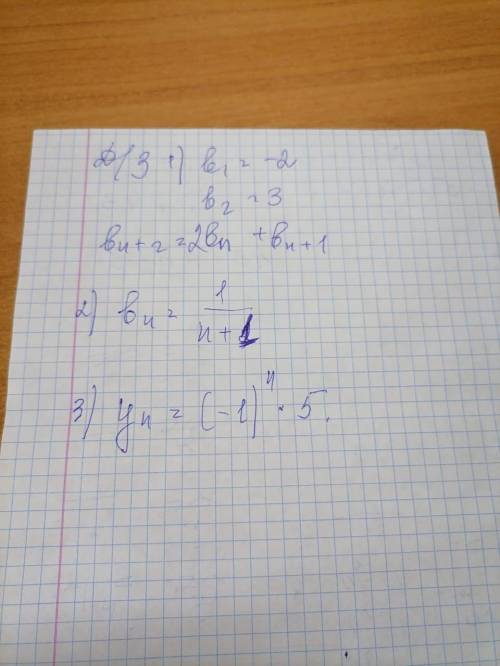 Д/З 1) b₁ = -2
b₂ = 3
bₙ₊₂ = 2bₙ + bₙ₊₁
2) bₙ = 1/(n+1)
3) yₙ = (-1)ⁿ · 5.